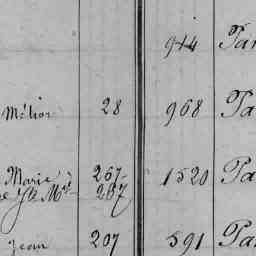 944 Pa
Mélior 28 968 Pa
Marie 267 1520 Pa
267
Jean 207 591 Pa